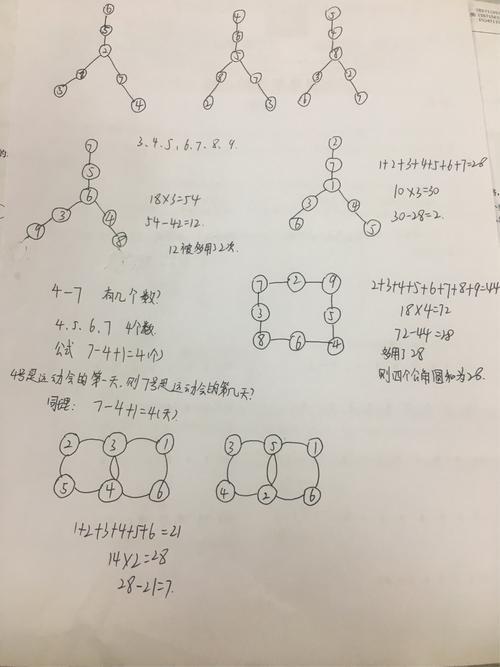 ⑥
⑤
②
⑧ ⑦
③ ④
④
⑥
⑤
⑧ ⑦
② ③
⑧
⑥ ⑦
3、4、5、6、7、8、9.
⑦
⑤
⑥
③ ④
⑨ ⑧
18×3=54
54-42=12.
12被多用了2次.
②
⑦
①
③ ④
⑥ ⑤
1+2+3+4+5+6+7=28
10×3=30
30-28=2.
4-7 有几个数?
4、5、6、7 4个数.
公式 7-4+1=4(个)
4号是运动会的第一天,则7号是运动会的第几天?
同理: 7-4+1=4(天)
⑦ ② ⑨
③ ⑤
⑧ ⑥ ④
2+3+4+5+6+7+8+9=44
18×4=72
72-44=28
多用了28
则四个公用圆和为28.
② ③ ①
⑤ ④ ⑥
③ ⑤ ①
④ ② ⑥
1+2+3+4+5+6=21
14×2=28
28-21=7.